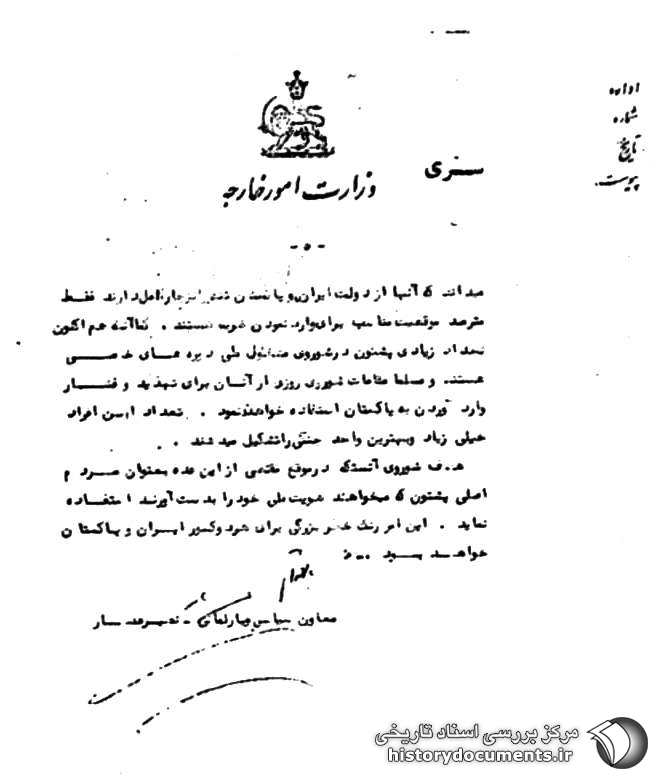 اداره
شماره
تاریخ
پیوست
سری
وزارت امور خارجه
-۵-
میدانند که آنها از دولت ایران و یا تمدن دارند فقط
مترصد موقعیت مناسب برای وارد نمودن ضربه هستند . کما آنکه هم اکنون
تعداد زیادی پشتون در شوروی مشغول طی دوره های خاصی
هستند و مسلما مقامات شوروی روزی از آنان برای تهدید و فشار
وارد آوردن به پاکستان استفاده خواهند نمود . تعداد این افراد
خیلی زیاد و بهترین واحد جنگی را تشکیل میدهند .
هدف شوروی آنستکه در موقع مقتضی از این عده بعنوان مردم
اصلی پشتون که میخواهند هویت ملی خود را بدست آورند استفاده
نماید . این امر زنگ خطر بزرگی برای هر دو کشور ایران و پاکستان
خواهد بود
معاون سیاسی و پارلمانی -
مرکز بررسی اسناد تاریخی
historydocuments.ir